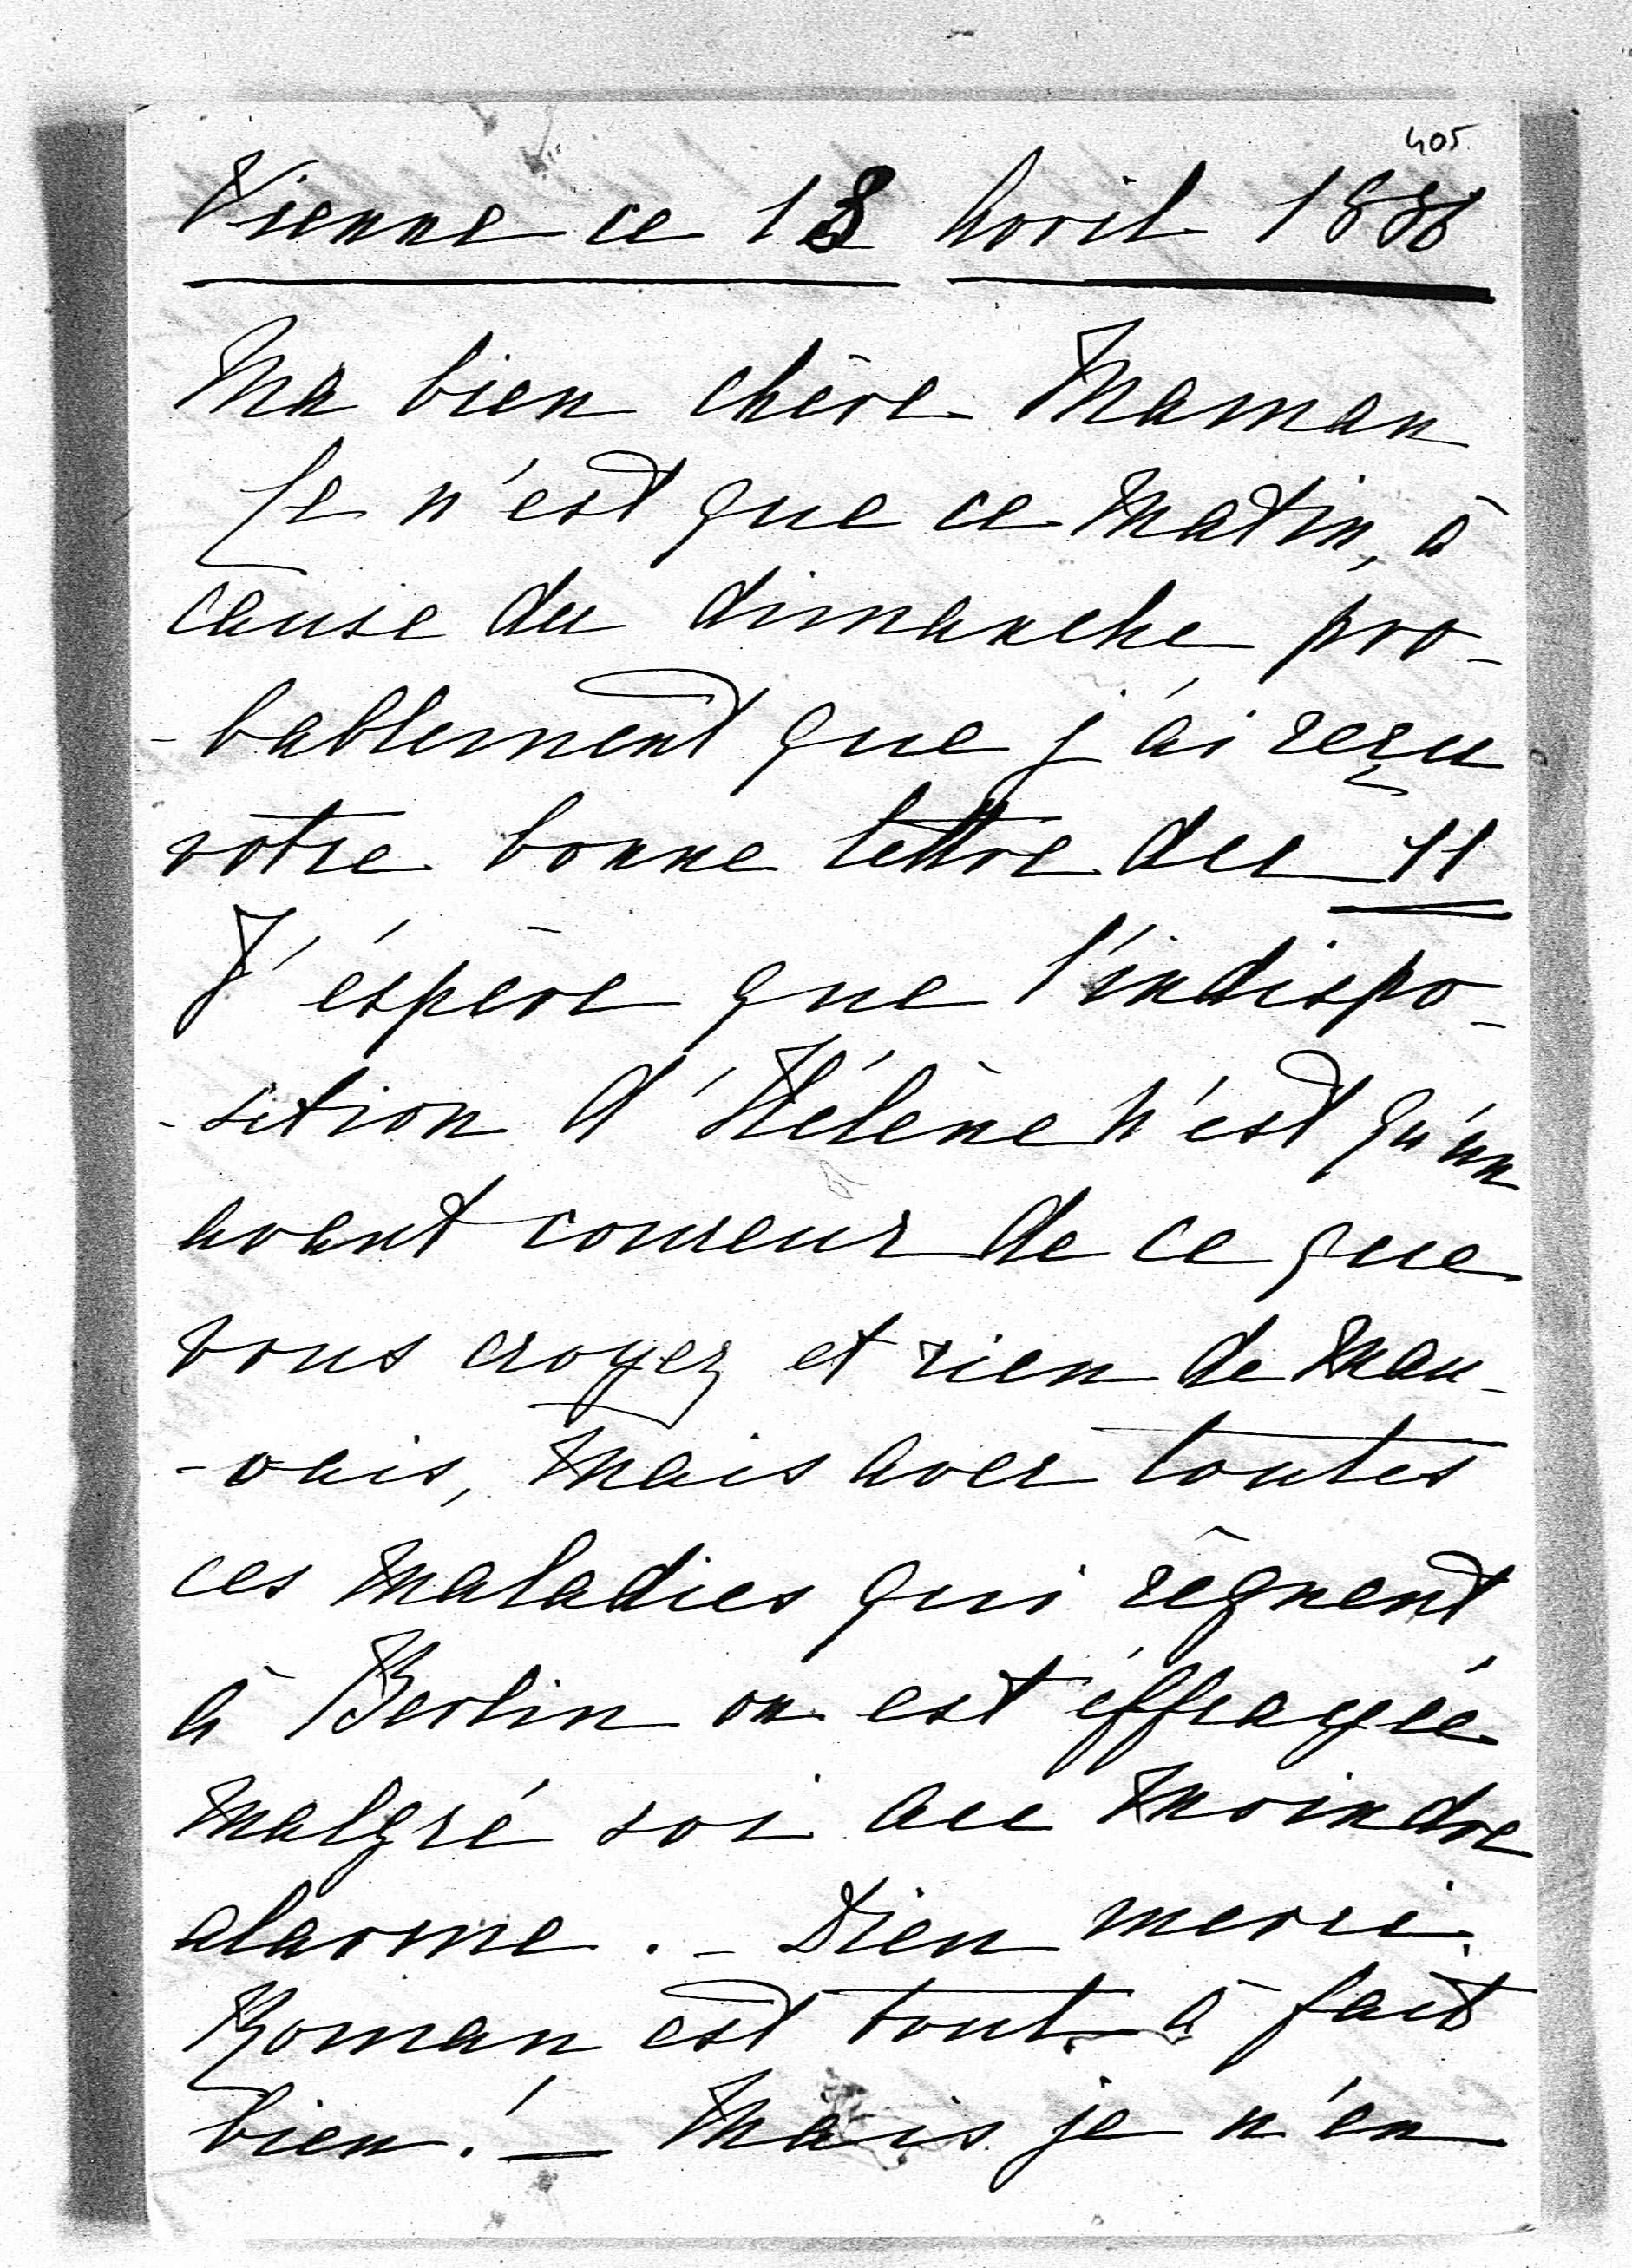 405.
Vienne ce 13 Avril 1886
Ma bien chère Maman
Ce n'est que ce matin, à
cause du dimanche pro-
-bablement que j'ai reçu
votre bonne lettre du 11
J'éspère que l'indispo-
-sition d'Hélène n'est qu'un
avant coureur de ce que
vous croyez et rien de mau-
-vais, mais avec toutes
ces maladies qui règnent
à Berlin on est éffrayée
malgré soi au moindre
alarme. - Dieu merci
Roman est tout à fait
bien! — Mais je n'en